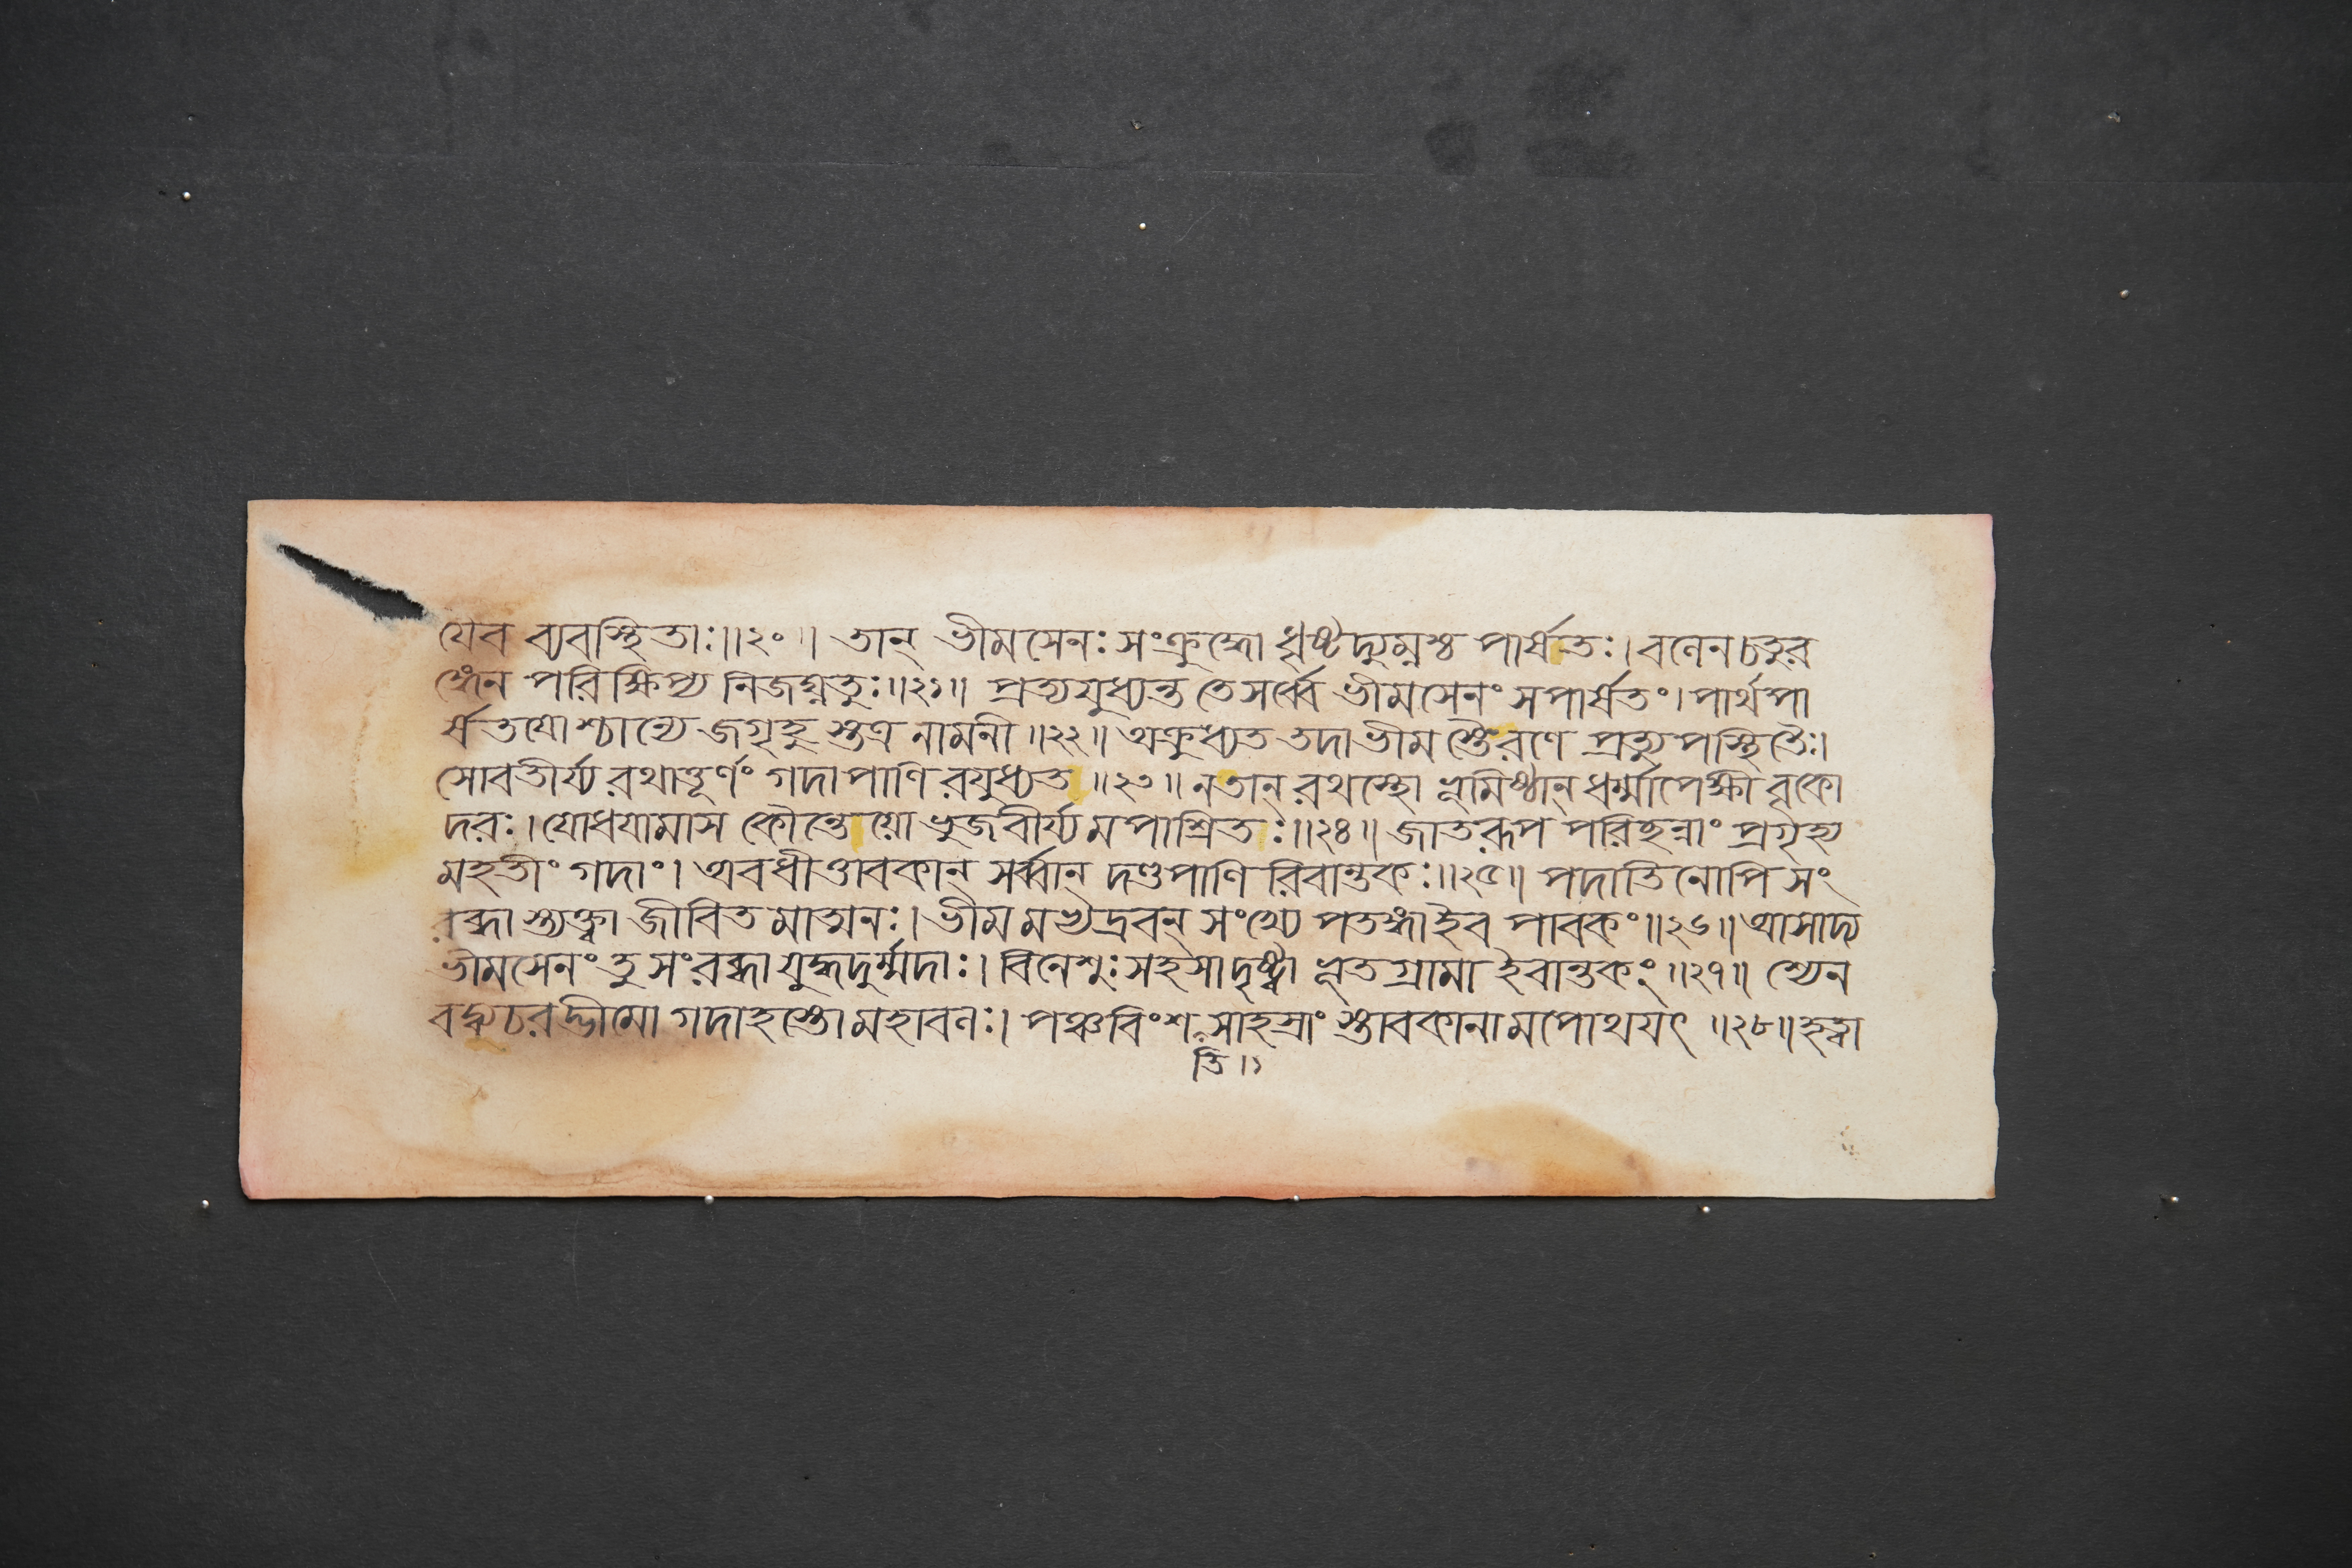 যেব ব্যবস্থিতাঃ॥২০॥ তান্ ভীমসেনঃ সংক্রুদ্ধো ধৃষ্টদ্যুম্নশ্চ পার্ষতঃ। বলেন চতুর
ঙ্গেন পরিক্ষিপ্য নিজঘ্নতুঃ॥২১॥ প্রত্যযুধ্যন্ত তে সর্ব্বে ভীমসেনং সপার্ষতং। পার্থপা
র্ষতযোশ্চান্যে জগৃহু স্তত্র নামনী॥২২॥ অক্রুধ্যত তদা ভীম স্তৈরণে প্রত্যুপস্থিতৈঃ।
সোবতীর্য্য রথাত্তূর্ণং গদাপাণি রযুধ্যত॥২৩॥ ন তান্ রথস্থো ভূমিষ্ঠান্ ধর্ম্মাপেক্ষী বৃকো
দরঃ। যোধযামাস কৌন্তেয়ো ভুজবীর্য্যমপাশ্রিতঃ॥২৪॥ জাতরূপ পরিছন্নাং প্রগৃহ্য
মহতীং গদাং। অবধীত্তাবকান্ সর্ব্বান্ দণ্ডপাণি রিবান্তকঃ॥২৫॥ পদাতিনোপি সং
রব্ধা স্ত্যক্ত্বা জীবিত মাত্মনঃ। ভীম মভ্যদ্রবন্ সংখ্যে পতঙ্গা ইব পাবকং॥২৬॥ আসাদ্য
ভীমসেনং তু সংরব্ধা যুদ্ধদুর্ম্মদাঃ। বিনেশুঃ সহসা দৃষ্ট্বা ভূতগ্রামা ইবান্তকং॥২৭॥ শ্যেন
বদ্ব্যচরদ্ভীমো গদাহস্তো মহাবলঃ। পঞ্চবিংশ সাহস্রাং স্তাবকানামপোথযৎ॥২৮॥ হত্বা
তি॥